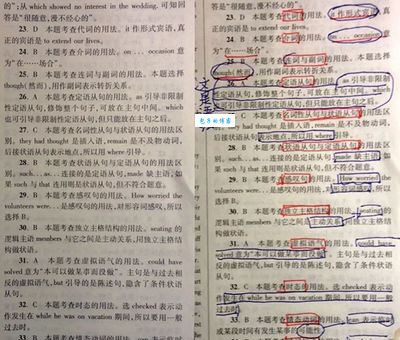 的";从 which showed no interest in the wedding. 可知回
答是"很随意,漫不经心的"。
23. D 本题考查代词的用法。it 作形式宾语,真
正的宾语是 to drink at lunchtime。
24. B 本题考查介词的用法。on … occasion 意
为"在……场合"。
25. B 本题考查连词与副词的用法。本题选择
though(然而),用作副词表示转折关系。
26. A 本题考查定语从句的用法。as 引导非限制
性定语从句,修饰整个句子,可放在主句中间。which
也可引导非限制性定语从句,但只能放在主句之后。
27. C 本题考查名词性从句与状语从句的用法区
别。they had thought 是插入语,remain 是不及物动词,
后接状语从句表示地点,所以用 where 引导。
28. B 本题考查状语从句与定语从句的用法区
别。such… as… 连接的是定语从句,made 缺主语;如
果 such 与 that 连用则是状语从句,但不符合题意。
29. B 本题考查感叹句的用法。How worried the
volunteers were… 是感叹句的用法,对形容词感叹,所以
选择 B。
30. B 本题考查独立主格结构的用法。seating 的
逻辑主语 members 与它之间是主动关系,用独立主格结
构做状语。
31. A 本题考查虚拟语气的用法。could have
solved 意为"本可以做某事而没做"。主句是与过去相
反的虚拟语气,but 引导的是陈述句,隐含了条件状语
从句。
32. C 本题考查时态的用法。选 checked 表示动
作发生在 while he was on vacation 期间,所以要用一般
过去时。
33. B 本题考查情态动词的用法。can 表示临时
答是"很随意,漫不经心的"。
23. D 本题考查代词的用法。it 作形式宾语,真
正的宾语是 to drink at lunchtime。
24. B 本题考查介词的用法。on … occasion 意
为"在……场合"。
25. B 本题考查连词与副词的用法。本题选择
though(然而),用作副词表示转折关系。
26. A 本题考查定语从句的用法。as 引导非限制
性定语从句,修饰整个句子,可放在主句中间。which
也可引导非限制性定语从句,但只能放在主句之后。
包子的博客
27. C 本题考查名词性从句与状语从句的用法区
别。they had thought 是插入语,remain 是不及物动词,
后接状语从句表示地点,所以用 where 引导。
28. B 本题考查状语从句与定语从句的用法区
别。such… as… 连接的是定语从句,made 缺主语;如
果 such 与 that 连用则是状语从句,但不符合题意。
29. B 本题考查感叹句的用法。How worried the
volunteers were… 是感叹句的用法,对形容词感叹,所以
选择 B。
30. B 本题考查独立主格结构的用法。seating 的
逻辑主语 members 与它之间是主动关系,用独立主格结
构做状语。
31. A 本题考查虚拟语气的用法。could have
solved 意为"本可以做某事而没做"。主句是与过去相
反的虚拟语气,but 引导的是陈述句,隐含了条件状语
从句。
32. C 本题考查时态的用法。选 checked 表示动
作发生在 while he was on vacation 期间,所以要用一般
过去时。
33. B 本题考查情态动词的用法。can 表示临时
或某段时间有发生某事的可能性。